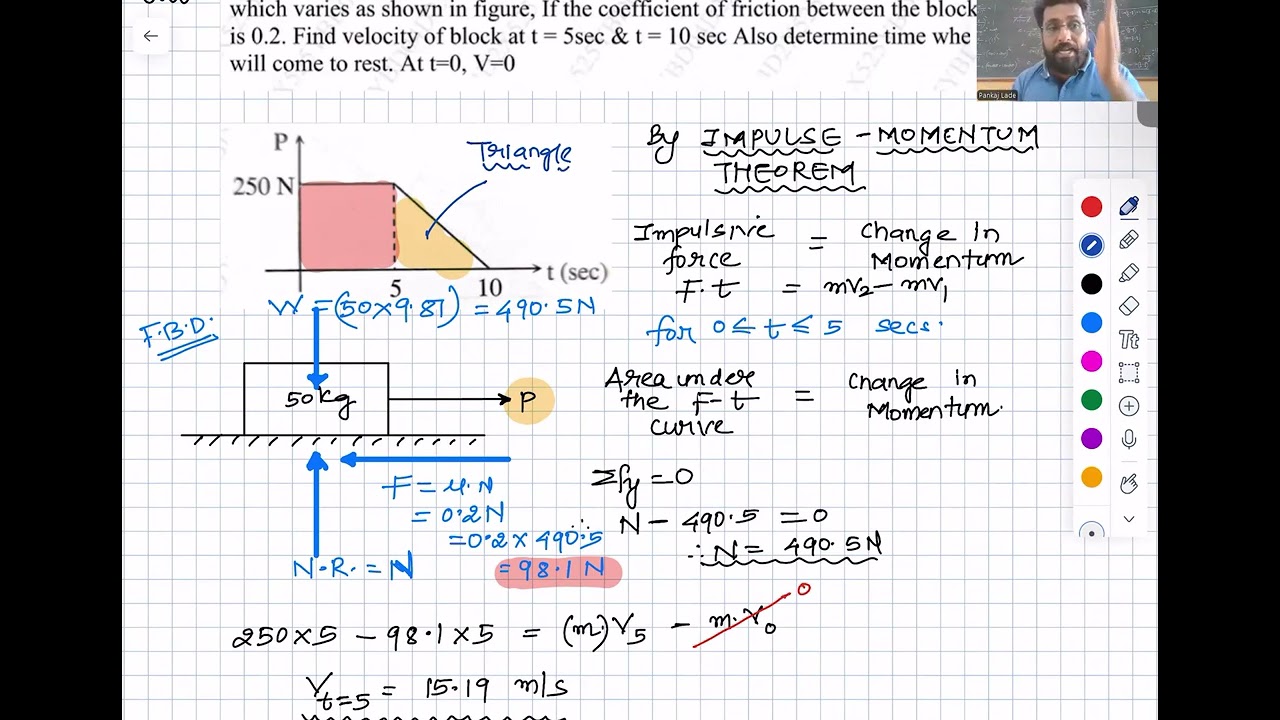 which varies as shown in figure, If the coefficient of friction between the block
is 0.2. Find velocity of block at t = 5sec & t = 10 sec Also determine time whe
will come to rest. At t=0, V=0
Pankaj Lade
P
250 N
Triangle
5
10
t (sec)
By IMPULSE - MOMENTUM
THEOREM
Impulsive force = Change In Momentum
F.t = mv₂ - mv₁
for 0 ≤ t ≤ 5 secs.
F.B.D.
W = (50×9.81) = 490.5N
50kg
P
F = μ.N
= 0.2N
= 0.2 × 490.5
= 98.1 N
N.R. = N
Area under the F-t curve = Change in Momentum.
Σfy = 0
N - 490.5 = 0
∴ N = 490.5N
250×5 - 98.1×5 = (m)V₅ - m.V₀
0
Vt=5 = 15.19 m/s
Tt